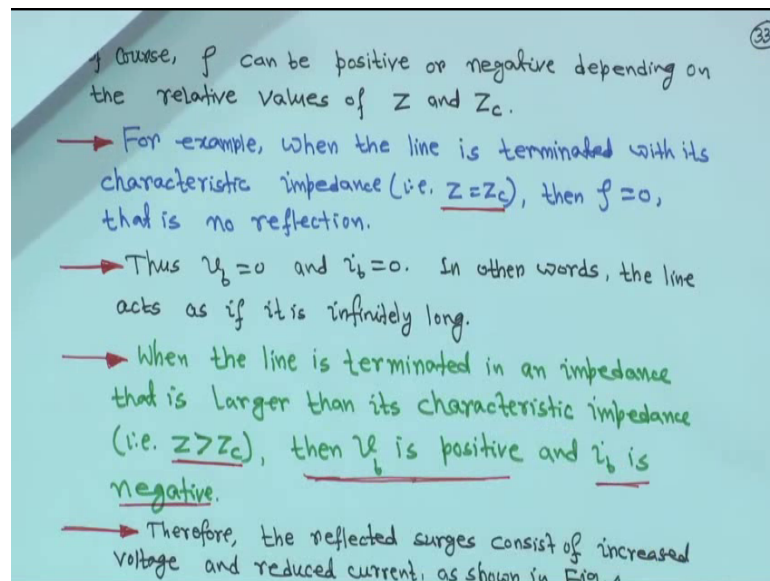 (33)
of course, ρ can be positive or negative depending on
the relative values of Z and Zc.
→ For example, when the line is terminated with its
characteristic impedance (i.e. Z = Zc), then ρ = 0,
that is no reflection.
→ Thus v_b = 0 and i_b = 0. In other words, the line
acts as if it is infinitely long.
→ When the line is terminated in an impedance
that is larger than its characteristic impedance
(i.e. Z > Zc), then v_b is positive and i_b is
negative.
→ Therefore, the reflected surges consist of increased
voltage and reduced current, as shown in Fig.